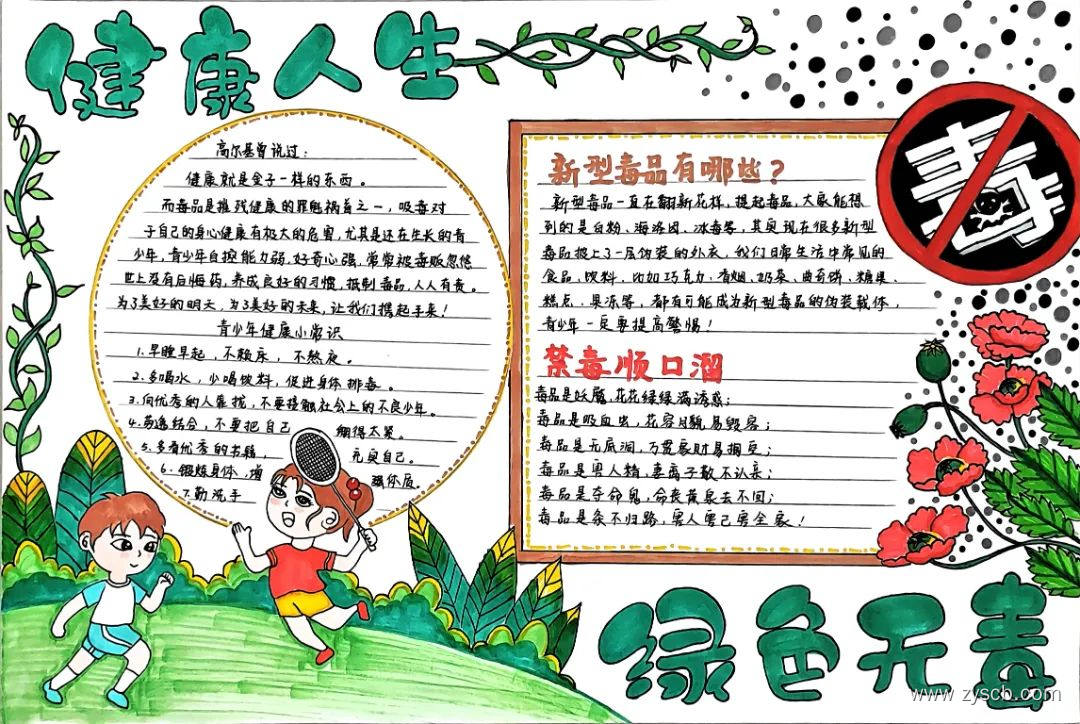 健康人生
高尔基曾说过：
健康就是金子一样的东西。
而毒品是摧残健康的罪魁祸首之一，吸毒对
于自己的身心健康有极大的危害，尤其是还在生长的青
少年，青少年自控能力弱，好奇心强，常常被毒贩忽悠
世上没有后悔药，养成良好的习惯，抵制毒品，人人有责。
为了美好的明天，为了美好的未来，让我们携起手来！
青少年健康小常识
1.早睡早起，不赖床，不熬夜。
2.多喝水，少喝饮料，促进身体排毒。
3.向优秀的人靠拢，不要接触社会上的不良少年。
4.劳逸结合，不要把自己 绷得太紧。
5.多看优秀的书籍， 充实自己。
6.锻炼身体，增 强体质。
7.勤洗手
新型毒品有哪些？
新型毒品一直在翻新花样，提起毒品，大家能想
到的是白粉、海洛因、冰毒等，其实现在很多新型
毒品披上了一层伪装的外衣，我们日常生活中常见的
食品、饮料，比如巧克力、香烟、奶茶、曲奇饼、糖果、
糕点、果冻等，都有可能成为新型毒品的伪装载体，
青少年一定要提高警惕！
禁毒顺口溜
毒品是妖魔，花花绿绿满诱惑；
毒品是吸血虫，花容月貌易毁容；
毒品是无底洞，万贯家财易掏空；
毒品是害人精，妻离子散不认亲；
毒品是夺命鬼，命丧黄泉去不回；
毒品是条不归路，害人害己害全家！
毒
绿色无毒
www.zyscb.com